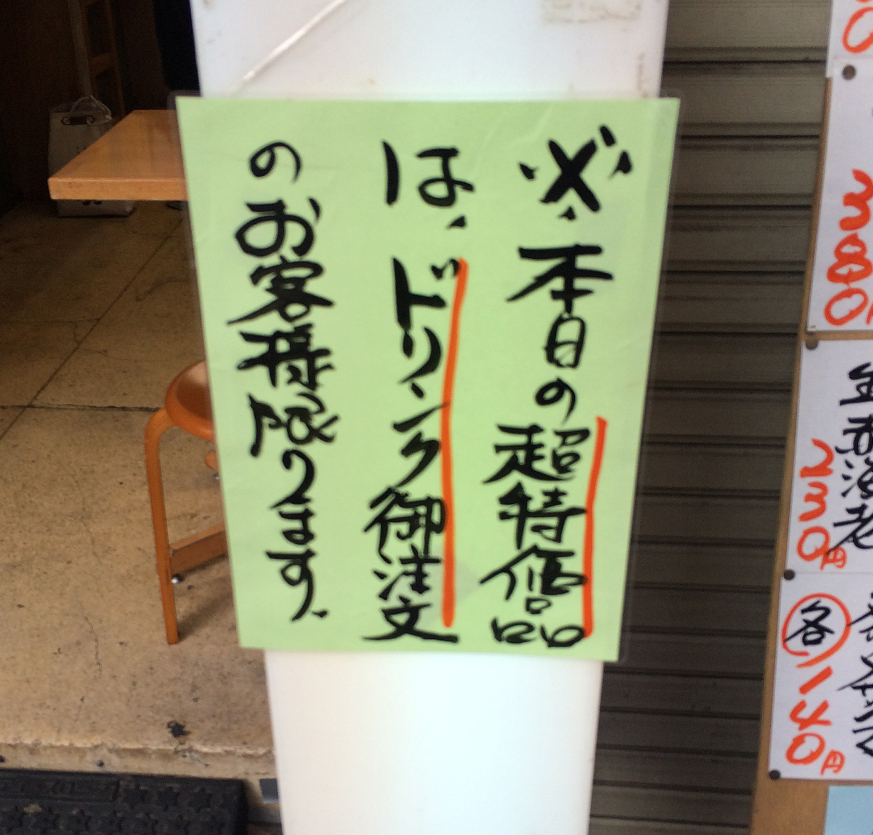 ※本日の超特価品
は、ドリンク御注文
のお客様限ります。
380
赤海老
230円
各140円